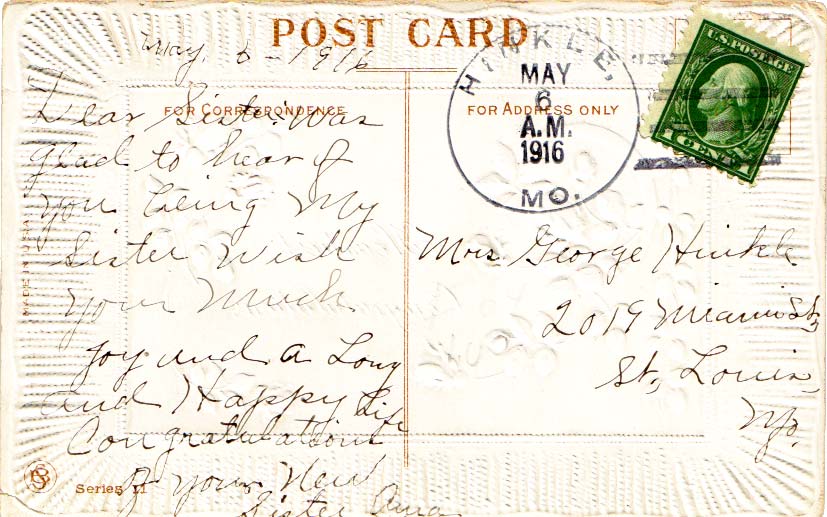 POST CARD
May. 6 - 1916
FOR CORRESPONDENCE
Dear Sister Was
glad to hear of
you being My
Sister Wish
your Much
Joy and a Long
and Happy Life
Congratulations
of your New
Sister
Series 11
MADE IN
FOR ADDRESS ONLY
HINKLE,
MAY
6
A.M.
1916
MO.
U.S. POSTAGE
1 CENT 1
Mrs George Hinkle
2019 Miami St,
St, Louis,
Mo.